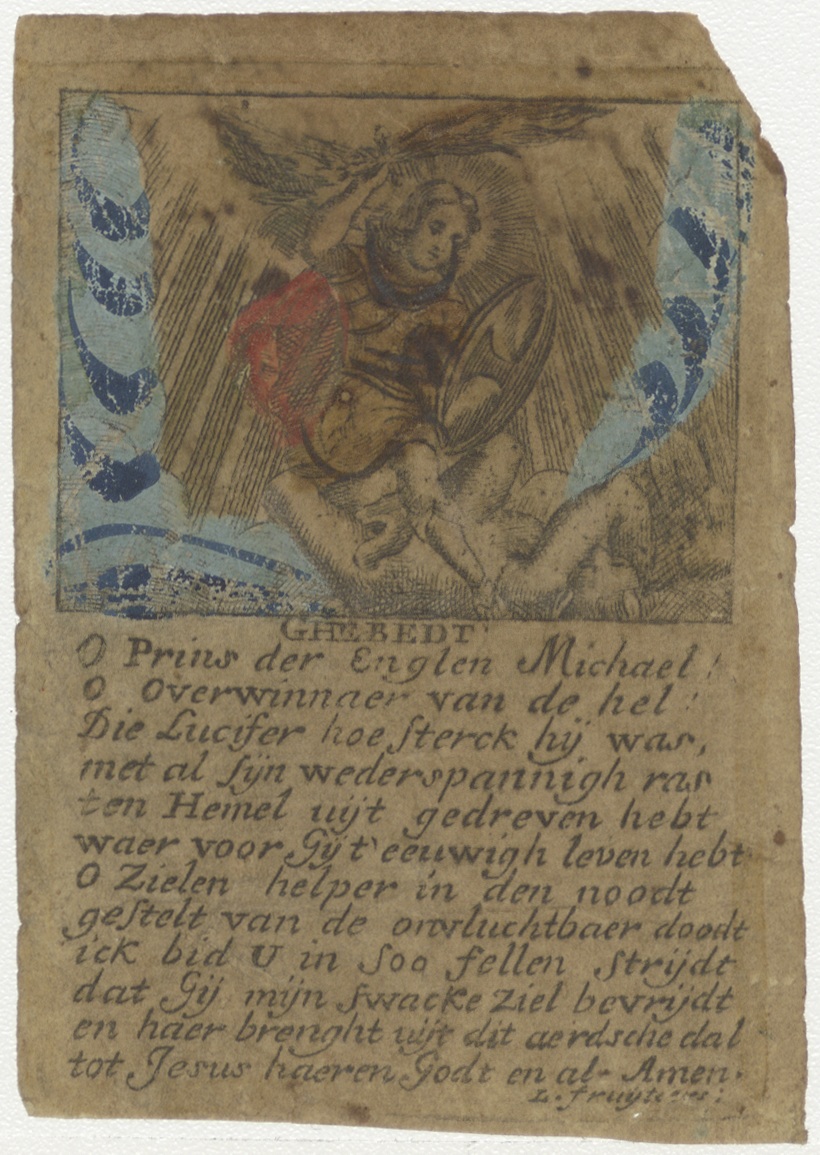 GHEBEDT
O Prins der Englen Michael!
O Overwinnaer van de hel!
Die Lucifer hoe sterck hij was,
met al sijn wederspannigh ras
ten Hemel uijt gedreven hebt
waer voor Gij t'eeuwigh leven hebt
O Zielen helper in den noodt
gestelt van de onvluchtbaer doodt
ick bid U in soo fellen strijdt
dat Gij mijn swacke ziel bevrijdt
en haer brenght uijt dit aerdsche dal
tot Jesus haeren Godt en al. Amen.
L. fruijtiers: